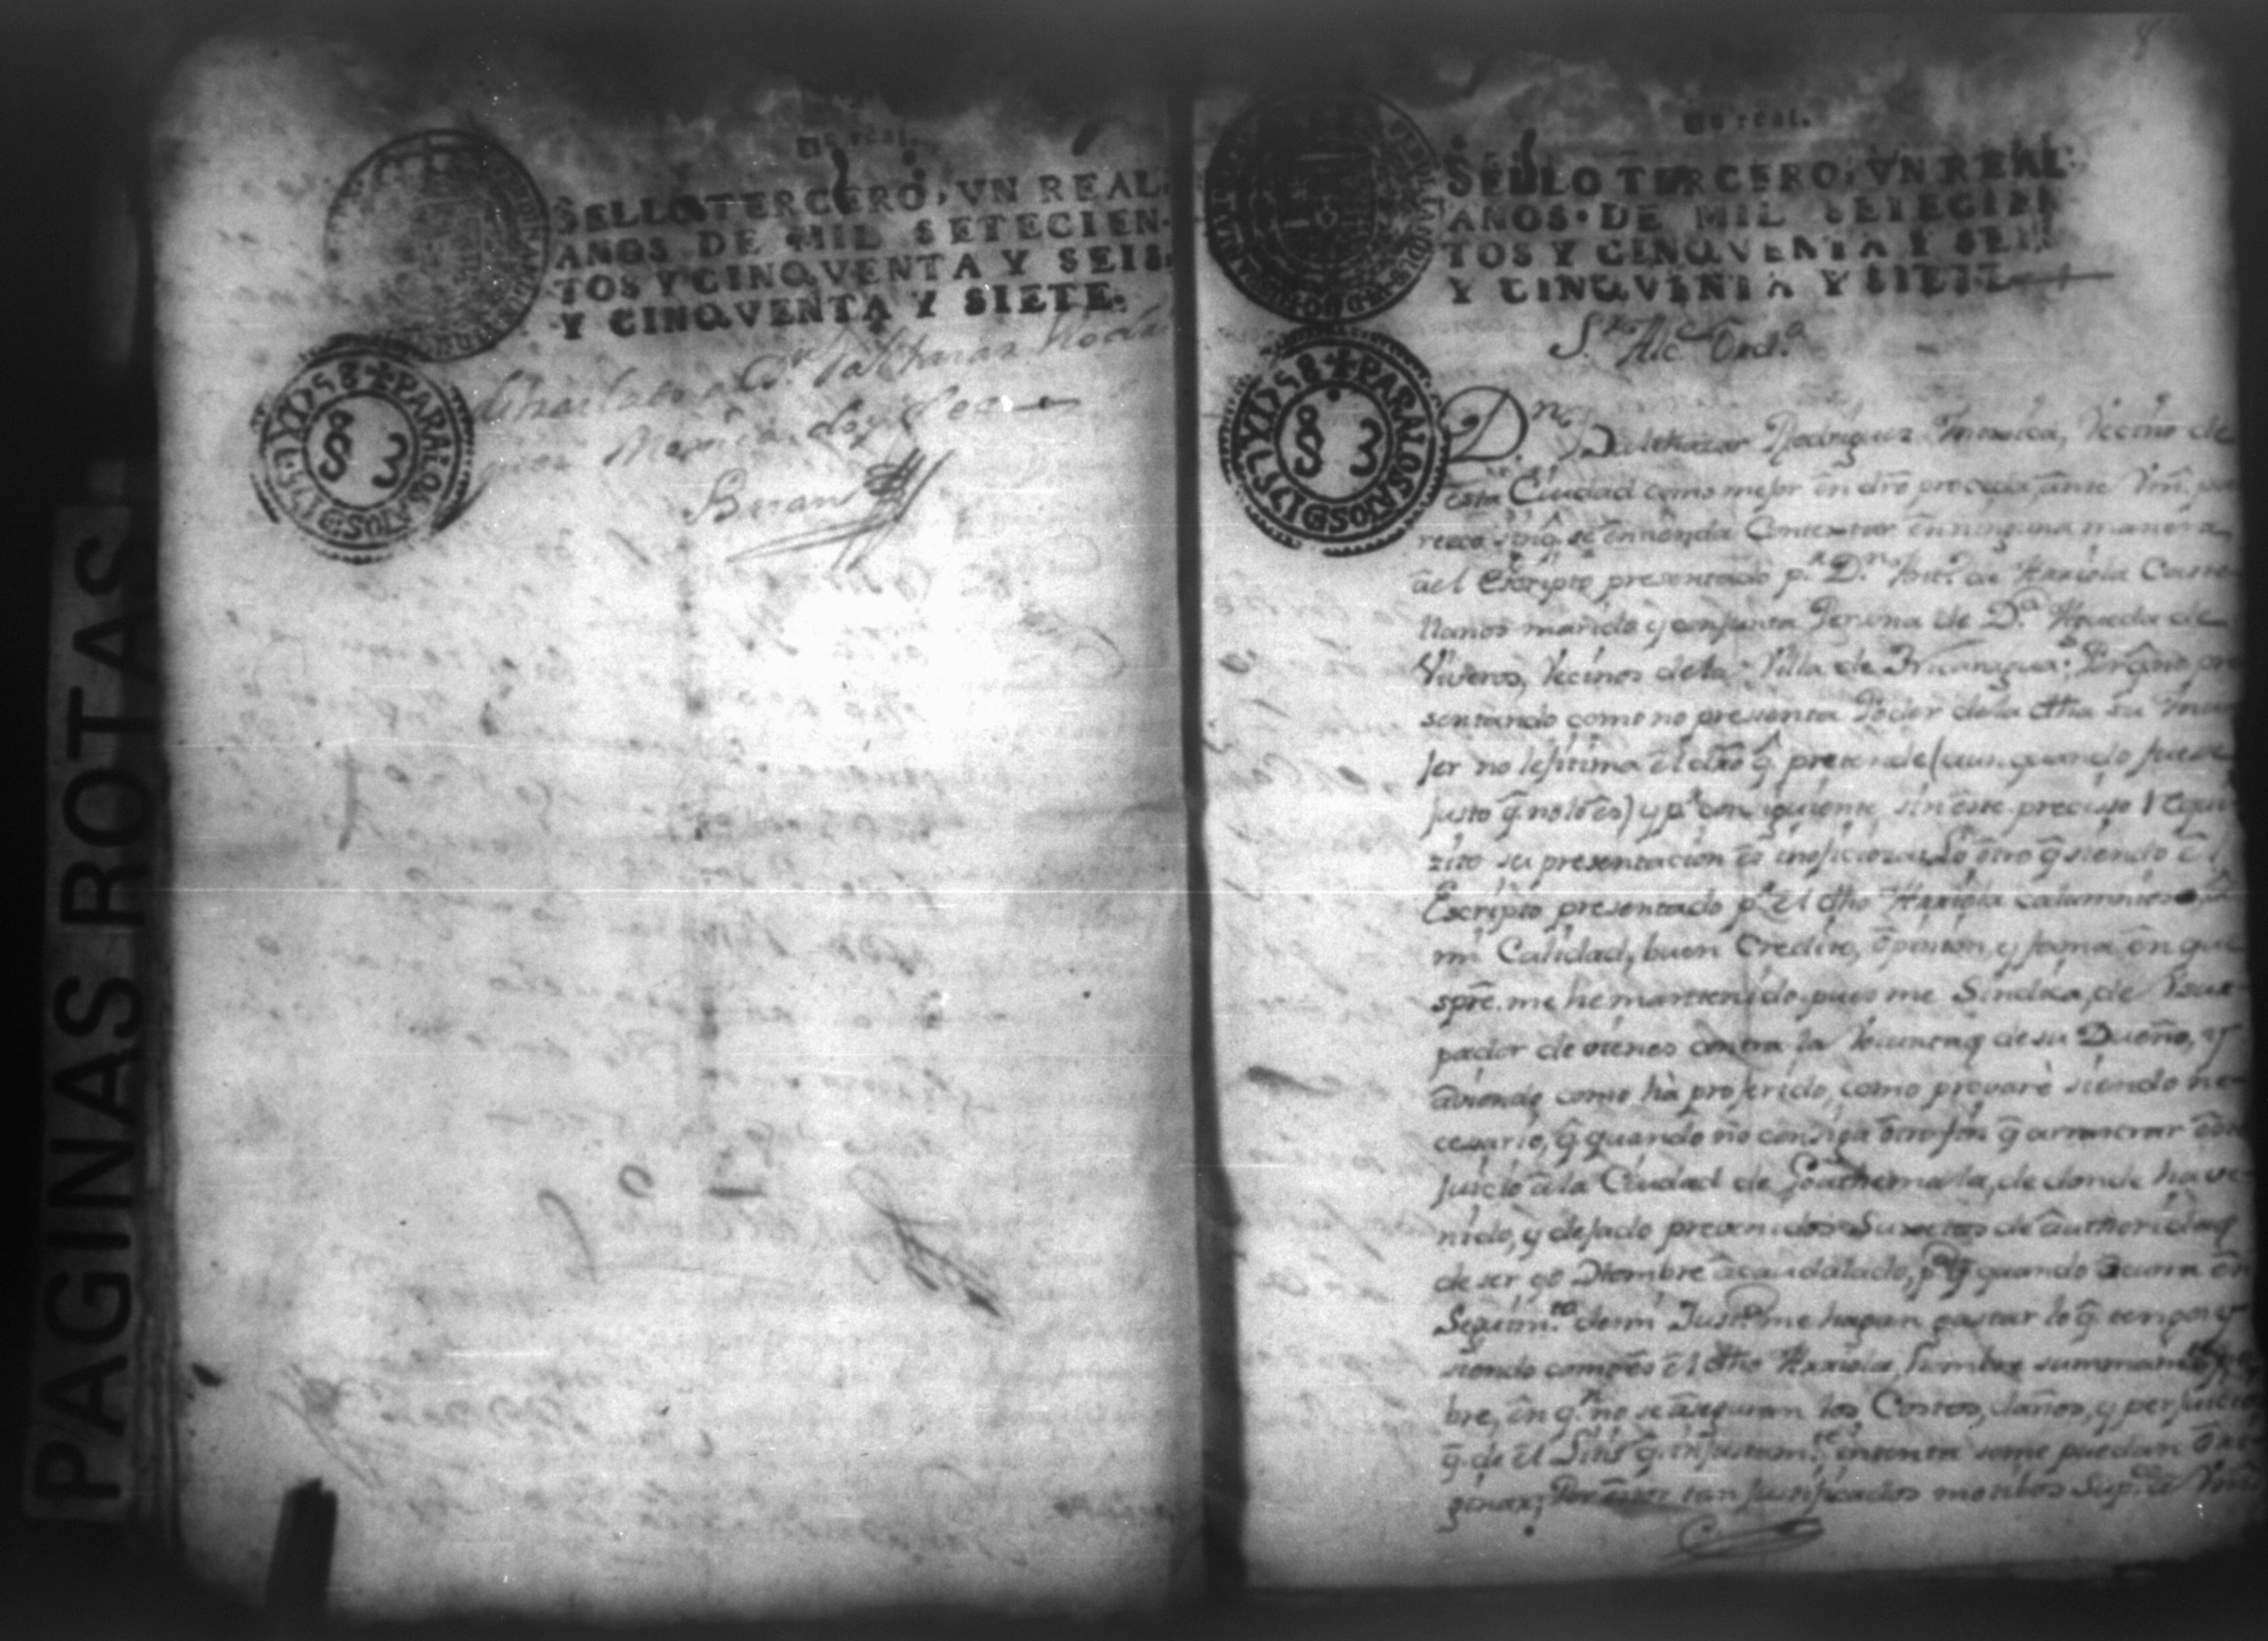 PAGINAS ROTAS
un real.
SELLO TERCERO, VN REAL
AÑOS DE MIL SETECIEN-
TOS Y CINQVENTA Y SEIS
Y CINQVENTA Y SIETE.
PARA LOS AÑOS
8
un real.
SELLO TERCERO, VN REAL
AÑOS DE MIL SETECIEN
TOS Y CINQVENTA Y SEIS
Y CINQVENTA Y SIETE
PARA LOS AÑOS
S.r Alc.e Ord.o
D.n Balthazar Rodriguez Vecino de
esta Ciudad como mejor en dro proceda ante Vm. pa
resco sin q̃ se entienda Contestar en ninguna manera
ael Escripto presentado p.r D.n Ant.o de Arriola
marido y conjunta Persona de D.a Agueda de
Viveros, Vecinos dela Villa de Nicaragua: pre
sentando como no presenta Poder dela dha su Mu
jer no lejitima el dro q̃ pretende (aun quando fuese
justo q̃ no lo es) y p.r consiguiente, sin este preciso requi
zito su presentacion es inoficioza: Lo otro q̃ siendo el
Escripto presentado p.r el dho Arriola calumnioso, a
mi Calidad, buen Credito, opinion, y fama en que
spre. me he mantenido, pues me Sindica, de Vsur-
pador de vienes contra la Voluntad de su Dueño, y
aviendo como ha proferido, como provarè siendo ne-
cesario, q̃ quando no consiga otro fin q̃ arrastrar este
juicio ala Ciudad de Goathemala, de donde ha ve-
nido, y dejado prevenidos Sujetos de authoridad
de ser yo Hombre acaudalado, p.a q̃ quando ocurra en
Seguim.to demi Just.a me hagan gastar lo q̃ tengo; y
siendo como es el dho Arriola, hombre summam.te po
bre, en q.n no se aseguran los Costos, daños, y perjuicios
q̃ de el Litis q̃ injustam.te intenta seme puedan ori
ginar; Por estos tan justificados motibos Sup.co a Vm